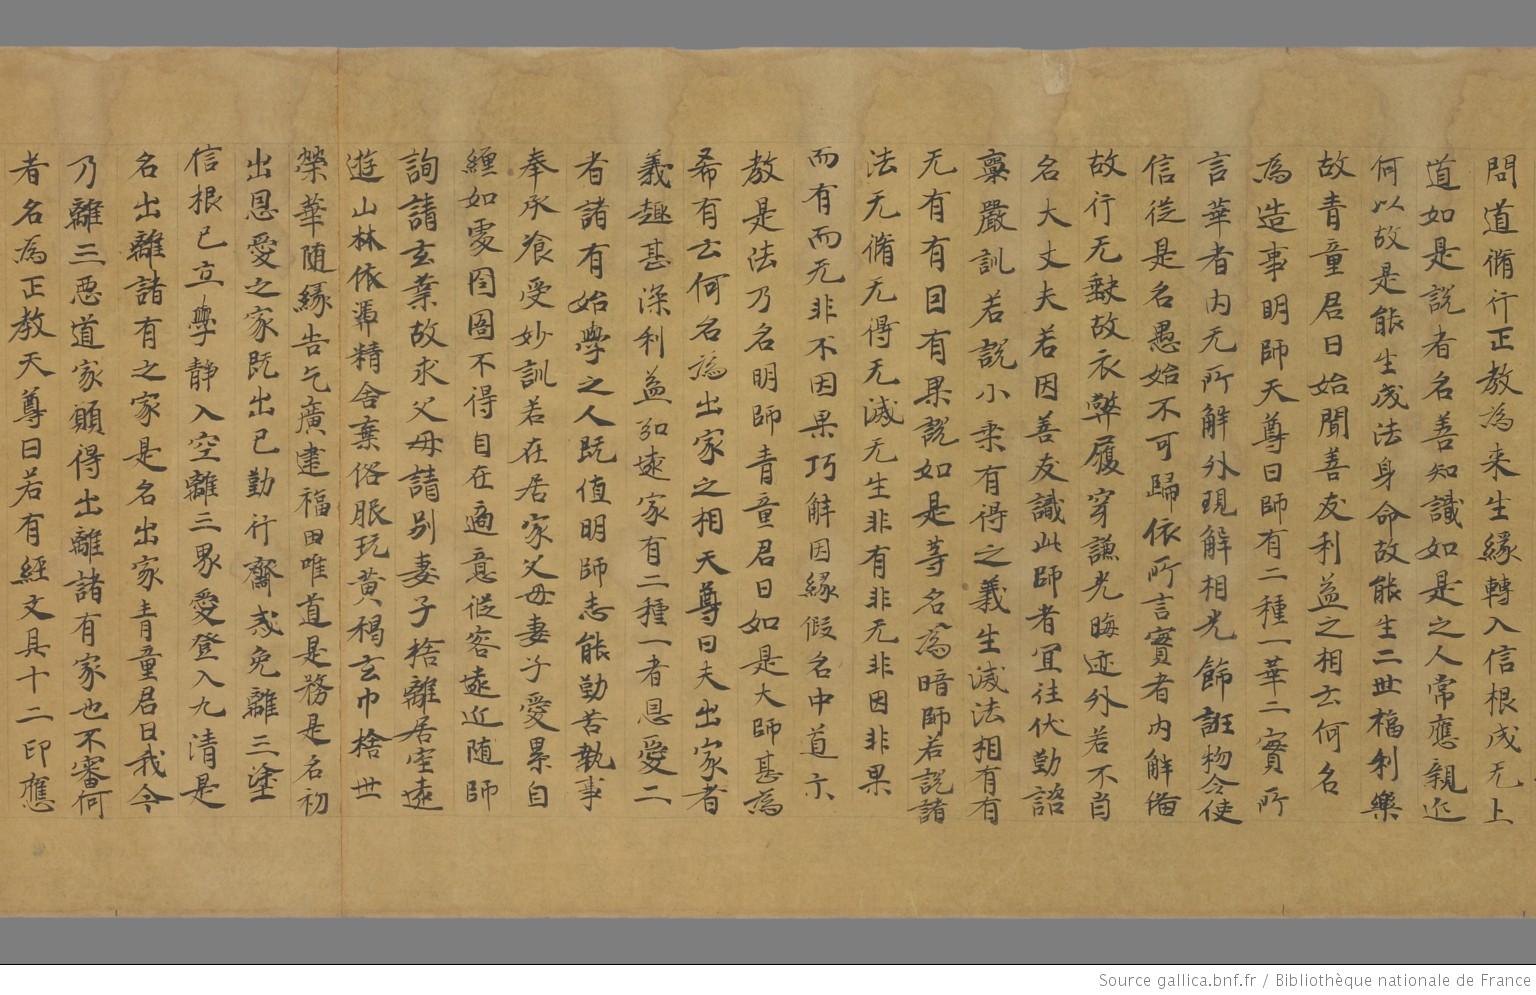 問道脩行正教為来生緣轉入信根成无上
道如是說者名善知識如是之人常應親近
何以故是能生成法身命故能生二世福利樂
故青童君曰始聞善友利益之相云何名
為造事明師天尊曰師有二種一華二實所
言華者內无所解外現解相光飾誑物令使
信從是名愚始不可歸依所言實者內解俻
故行无缺故衣弊履穿謙光晦迹外若不肖
名大丈夫若因善友識此師者宜往伏勤諮
稟嚴訓若說小乘有得之義生滅法相有有
无有有因有果說如是等名為暗師若說諸
法无脩无得无滅无生非有非无非因非果
而有而无非不因果巧解因緣假名中道亦
教是法乃名明師青童君曰如是大師甚為
希有云何名為出家之相天尊曰夫出家者
義趣甚深利益弘遠家有二種一者恩愛二
者諸有始學之人既值明師志能勤苦執事
奉承飡受妙訓若在居家父母妻子愛累自
纏如處囹圄不得自在適意從容遠近随師
詢請玄業故求父母請別妻子捨離居室遠
遊山林依憑精舍棄俗服玩黃褐玄巾捨世
榮華随緣告乞廣建福田唯道是務是名初
出恩愛之家既出已勤行齋戒免離三塗
信根已立學静入空離三界愛登入九清是
名出離諸有之家是名出家青童君曰我今
乃離三惡道家願得出離諸有家也不審何
者名為正教天尊曰若有經文具十二印應
Source gallica.bnf.fr / Bibliothèque nationale de France